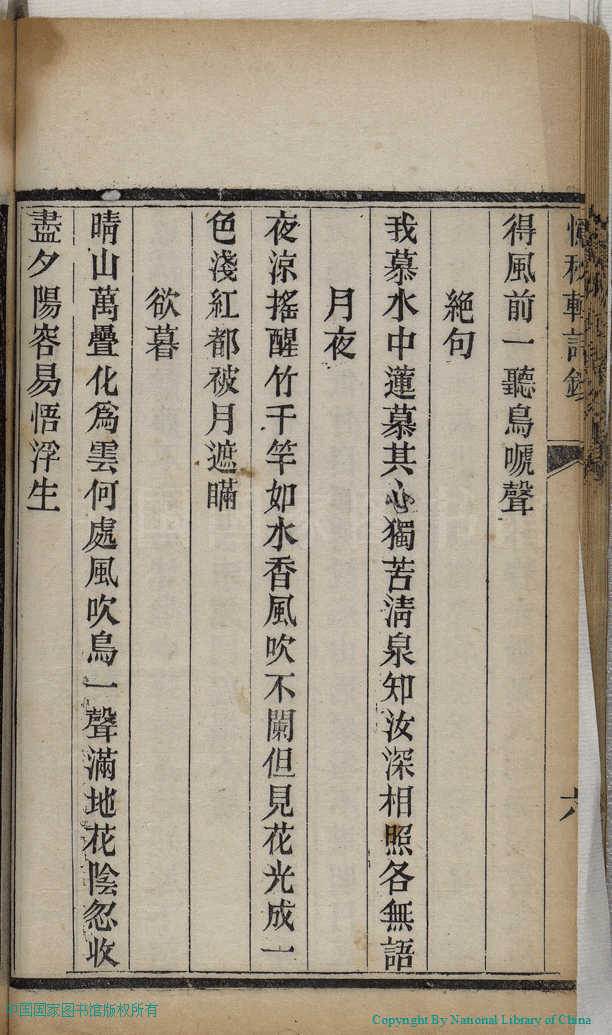 軒詩鈔
六
得風前一聽鳥嚦聲
絕句
我慕水中蓮慕其心獨苦淸泉知汝深相照各無語
月夜
夜涼搖醒竹千竿如水香風吹不闌但見花光成一
色淺紅都被月遮瞞
欲暮
晴山萬疊化爲雲何處風吹鳥一聲滿地花陰忽收
盡夕陽容易悟浮生
中国国家图书馆版权所有
Copyright By National Library of China